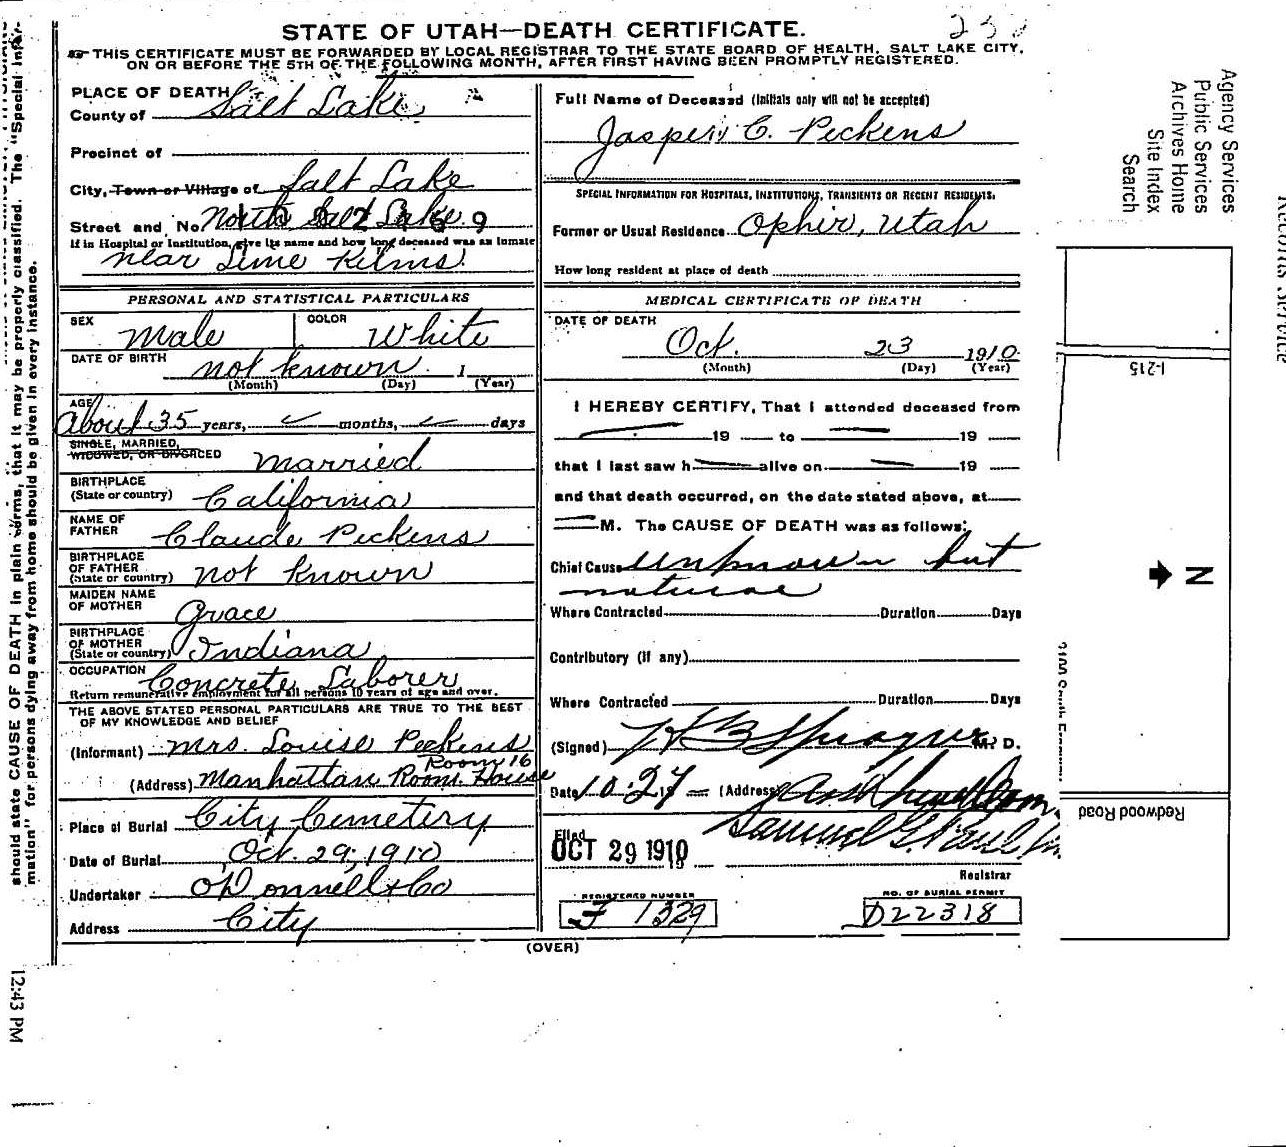 STATE OF UTAH—DEATH CERTIFICATE.
THIS CERTIFICATE MUST BE FORWARDED BY LOCAL REGISTRAR TO THE STATE BOARD OF HEALTH, SALT LAKE CITY,
ON OR BEFORE THE 5TH OF THE FOLLOWING MONTH, AFTER FIRST HAVING BEEN PROMPTLY REGISTERED.
PLACE OF DEATH
County of Salt Lake
Precinct of
City, Town or Village of Salt Lake
Street and No. North Salt Lake
If in Hospital or Institution, give its name and how long deceased was an inmate
near Lime Kilns.
PERSONAL AND STATISTICAL PARTICULARS
SEX Male COLOR White
DATE OF BIRTH not known 1
(Month) (Day) (Year)
AGE About 35 years, months, days
SINGLE, MARRIED,
WIDOWED, OR DIVORCED Married
BIRTHPLACE
(State or country) California
NAME OF
FATHER Claude Pickens
BIRTHPLACE
OF FATHER
(State or country) not known
MAIDEN NAME
OF MOTHER Grace
BIRTHPLACE
OF MOTHER
(State or country) Indiana
OCCUPATION Concrete Laborer
Return remunerative employment for all persons 10 years of age and over.
THE ABOVE STATED PERSONAL PARTICULARS ARE TRUE TO THE BEST
OF MY KNOWLEDGE AND BELIEF
(Informant) Mrs. Louise Peckins
Room 16
(Address) Manhattan Room. House
Place of Burial City Cemetery
Date of Burial Oct. 29, 1910
Undertaker O'Donnell & Co
Address City
Full Name of Deceased (Initials only will not be accepted)
Jasper C. Peckens
SPECIAL INFORMATION FOR HOSPITALS, INSTITUTIONS, TRANSIENTS OR RECENT RESIDENTS.
Former or Usual Residence Ophir, Utah
How long resident at place of death
MEDICAL CERTIFICATE OF DEATH
DATE OF DEATH
Oct. 23 1910
(Month) (Day) (Year)
I HEREBY CERTIFY, That I attended deceased from
19 to 19
that I last saw h alive on 19
and that death occurred, on the date stated above, at
M. The CAUSE OF DEATH was as follows:
Chief Cause Unknown but
natural
Where Contracted Duration Days
Contributory (if any)
Where Contracted Duration Days
(Signed) Sprague M. D.
Date 10-27 (Address)
Filed
OCT 29 1910
Samuel G. Paul
Registrar
REGISTERED NUMBER
F 1329
NO. OF BURIAL PERMIT
D22318
(OVER)
should state CAUSE OF DEATH in plain terms, that it may be properly classified. The "Special Infor-
mation" for persons dying away from home should be given in every instance.
12:43 PM
Agency Services
Public Services
Archives Home
Site Index
Search
I-215
N
Redwood Road